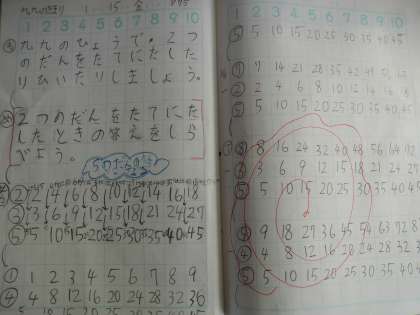 九九のきまり 1 15 金 P75
1 2 3 4 5 6 7 8 9 10
九九のひょうで、2つ
のだんをたてにたした
りひいたりしましょう。
2つのだんをたてにた
したときの答えをしら
べよう。
5のだんの
② 2 4 6 8 10 12 14 16 18
③ 3 6 9 12 15 18 21 24 27
⑤ 5 10 15 20 25 30 35 40 45
① 1 2 3 4 5 6 7 8 9
④ 4 8 12 16 20 24 28 32 36
1 2 3 4 5 6 7 8 9 10
⑤ 5 10 15 20 25 30 35 40 45
⑦ 7 14 21 28 35 42 49
② 2 4 6 8 10 12 14 16 18
⑤ 5 10 15 20 25 30 35 40 45
⑧ 8 16 24 32 40 48 56 64 72
③ 3 6 9 12 15 18 21 24 27
⑤ 5 10 15 20 25 30 35 40 45
9 18 27 36 45 54 63 72 8
④ 4 8 12 16 20 24 28 32 3
⑤ 5 10 15 20 25 30 35 40